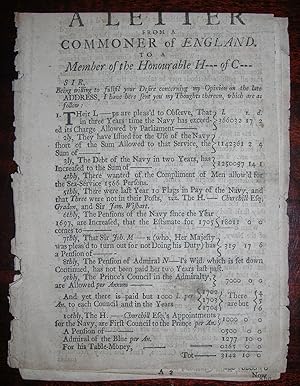 A LETTER
FROM A
COMMONER of ENGLAND.
TO A
Member of the Honourable H--- of C---
SIR,
Being willing to fullfil your Desire concerning my Opinion on the late
ADDRESS, I have here sent you my Thoughts thereon, which are as
follow:
THeir L---ps are pleas'd to Observe, That
in three Years time the Navy has exceed-
ed its Charge Allowed by Parliament
2ly, They have Issued for the Use of the Navy
short of the Sum Allowed to that Service, the
Sum of
3ly, The Debt of the Navy in two Years, has
Increased to the Sum of
4thly, There wanted of the Compliment of Men allow'd for
the Sea-Service 1566 Persons.
5thly, There were last Year 10 Flags in Pay of the Navy, and
that Three were not in their Posts, viz. The H. --- Churchill Esq;
Graydon, and Sir Jam. Wishart.
6thly, The Pensions of the Navy since the Year
1697, are Increased, that the Estimate for 1705
comes to
7thly, That Sir Joh. M---n (who, Her Majesty
was pleas'd to turn out for not Doing his Duty) has 319 17 6
a Pension of
8thly, The Pension of Admiral N---'s Wid. which is set down
Continued, has not been paid her two Years last past.
9thly, The Prince's Council in the Admiralty,
are Allowed per Annum
And yet there is paid but 1000 l. per
An. to each Council and in the Years
There
are but
10thly, The H. --- Churchill Esq;'s Appointments
for the Navy, are First Council to the Prince per An.
A Pension of
Admiral of the Blue per An. 1277 10 0
For his Table-Money,
Tot--- 3142 10 0
A 2
Now